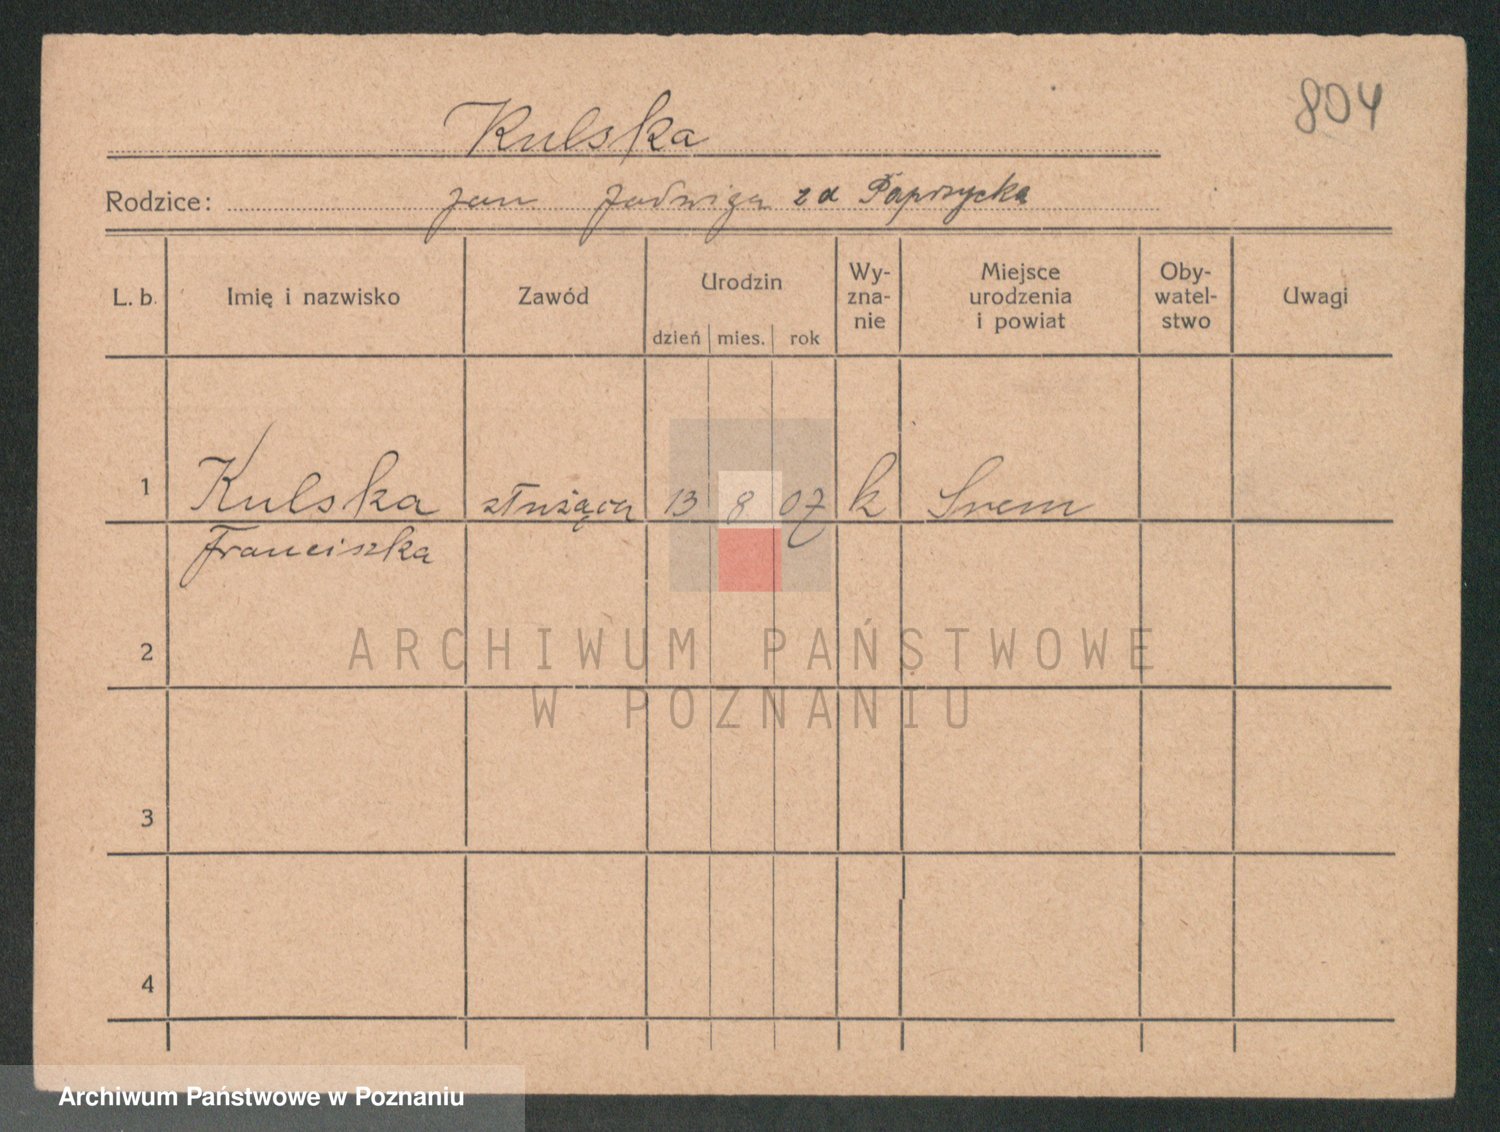 804
Kulska
Rodzice: Jan Jadwiga zd Paprzycka
L. b. Imię i nazwisko Zawód Urodzin Wy- Miejsce Oby- Uwagi
zna- urodzenia watel-
nie i powiat stwo
dzień mies. rok
1 Kulska służąca 13 8 07 k Srem
Franciszka
2
ARCHIWUM PAŃSTWOWE
W POZNANIU
3
4
Archiwum Państwowe w Poznaniu